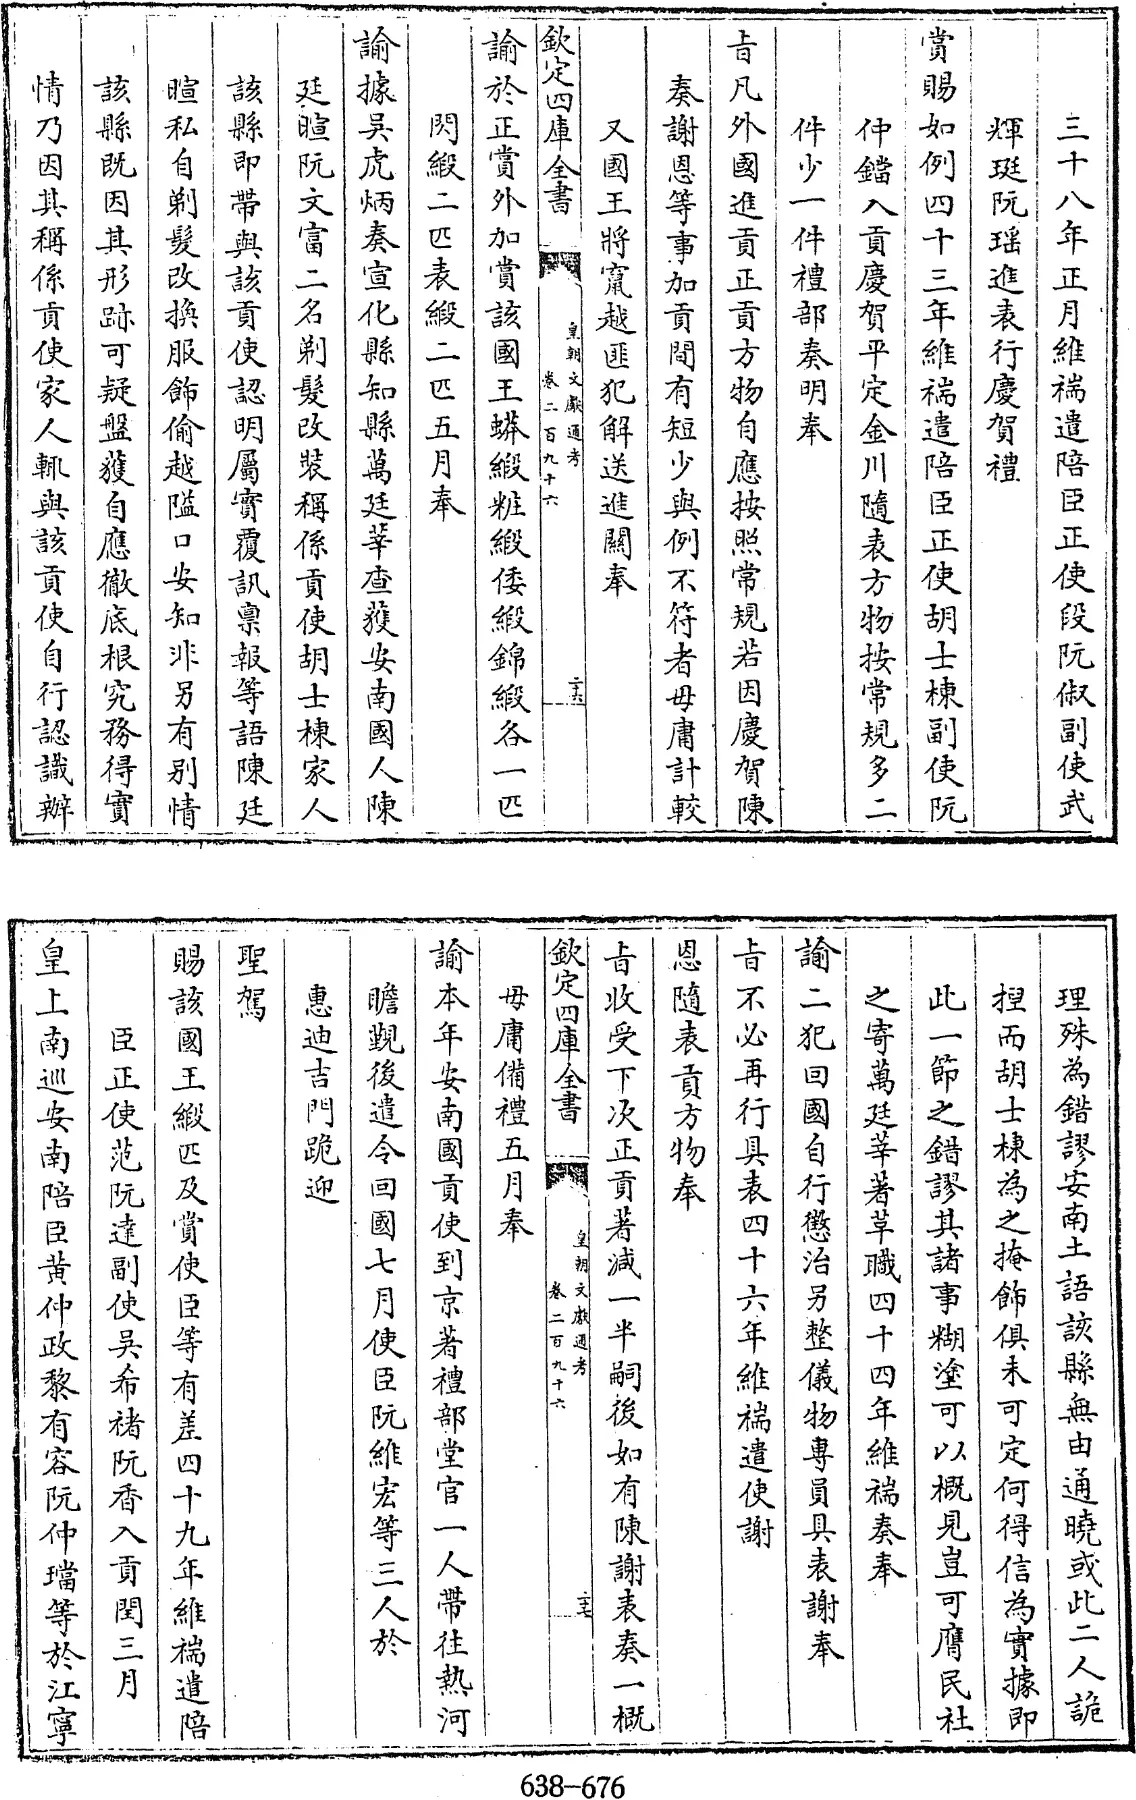 三十八年正月維禑遣陪臣正使段阮俶副使武
輝珽阮瑶進表行慶賀禮
賞賜如例四十三年維禑遣陪臣正使胡士棟副使阮
仲鐺入貢慶賀平定金川隨表方物按常規多二
件少一件禮部奏明奉
旨凡外國進貢正貢方物自應按照常規若因慶賀陳
奏謝恩等事加貢間有短少與例不符者毋庸計較
又國王將竄越匪犯解送進關奉
欽定四庫全書
皇朝文獻通考
卷二百九十六
二十六
諭於正賞外加賞該國王蟒緞粧緞倭緞錦緞各一匹
閃緞二匹表緞二匹五月奉
諭據吳虎炳奏宣化縣知縣萬廷莘查獲安南國人陳
廷暄阮文富二名剃髮改裝稱係貢使胡士棟家人
該縣即帶與該貢使認明屬實覆訊禀報等語陳廷
暄私自剃髮改換服飾偷越隘口安知非另有別情
該縣既因其形跡可疑盤獲自應徹底根究務得實
情乃因其稱係貢使家人輒與該貢使自行認識辦
理殊為錯謬安南土語該縣無由通曉或此二人詭
捏而胡士棟為之掩飾俱未可定何得信為實據即
此一節之錯謬其諸事糊塗可以概見豈可膺民社
之寄萬廷莘著革職四十四年維禑奏奉
諭二犯回國自行懲治另整儀物專員具表謝奉
旨不必再行具表四十六年維禑遣使謝
恩隨表貢方物奉
旨收受下次正貢著減一半嗣後如有陳謝表奏一概
欽定四庫全書
皇朝文獻通考
卷二百九十六
二十七
毋庸備禮五月奉
諭本年安南國貢使到京著禮部堂官一人帶往熱河
瞻覲後遣令回國七月使臣阮維宏等三人於
惠迪吉門跪迎
聖駕
賜該國王緞匹及賞使臣等有差四十九年維禑遣陪
臣正使范阮達副使吳希褚阮香入貢閏三月
皇上南巡安南陪臣黃仲政黎有容阮仲璫等於江寧
638-676